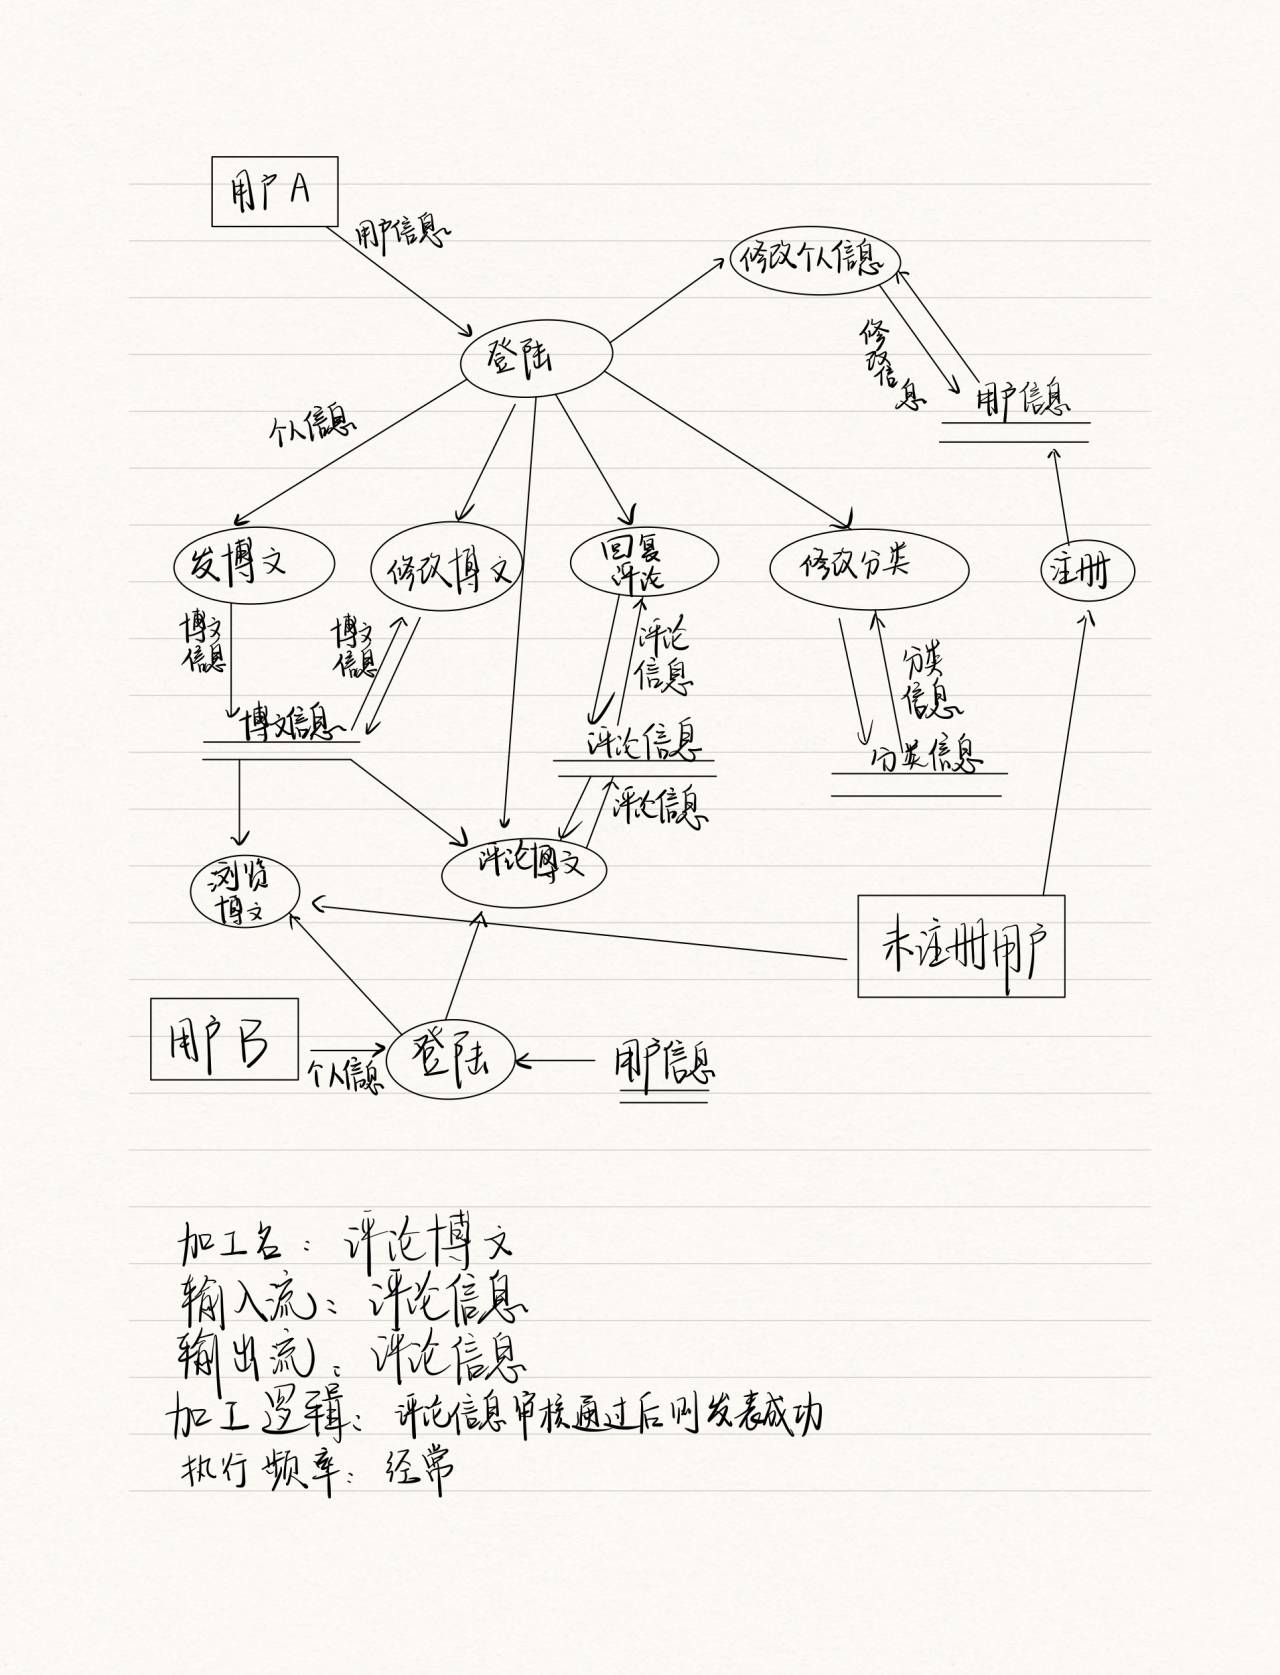 用户A
用户信息
修改个人信息
登陆
修改信息
用户信息
个人信息
发博文
修改博文
回复
评论
修改分类
注册
博文
信息
博文
信息
评论
信息
分类
信息
博文信息
评论信息
分类信息
评论信息
浏览
博文
评论博文
未注册用户
用户B
个人信息
登陆
用户信息
加工名：评论博文
输入流：评论信息
输出流：评论信息
加工逻辑：评论信息审核通过后则发表成功
执行频率：经常